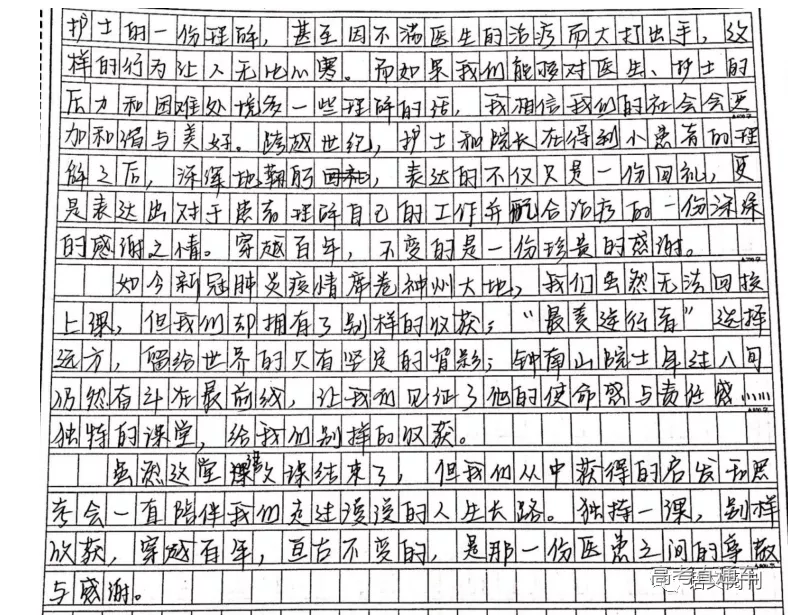 护士的一份理解，甚至因不满医生的治疗而大打出手，这
样的行为让人无比心寒。而如果我们能够对医生、护士的
压力和困难处境多一些理解的话，我相信我们的社会会更
加和谐与美好。跨越世纪，护士和院长在得到小患者的理
解之后，深深地鞠躬回礼，表达的不仅只是一份回礼，更
是表达出对于患者理解自己的工作并配合治疗的一份深深
的感谢之情。穿越百年，不变的是一份珍贵的感谢。
如今新冠肺炎疫情席卷神州大地，我们虽然无法回校
上课，但我们却拥有了别样的收获；“最美逆行者”选择
远方，留给世界的只有坚定的背影；钟南山院士年过八旬
仍然奋斗在最前线，让我们见证了他的使命感与责任感……
独特的课堂，给我们别样的收获。
虽然这堂课结束了，但我们从中获得的启发和思
考会一直陪伴我们走过漫漫的人生长路。独特一课，别样
收获，穿越百年，亘古不变的，是那一份医患之间的尊敬
与感谢。
高考直通车